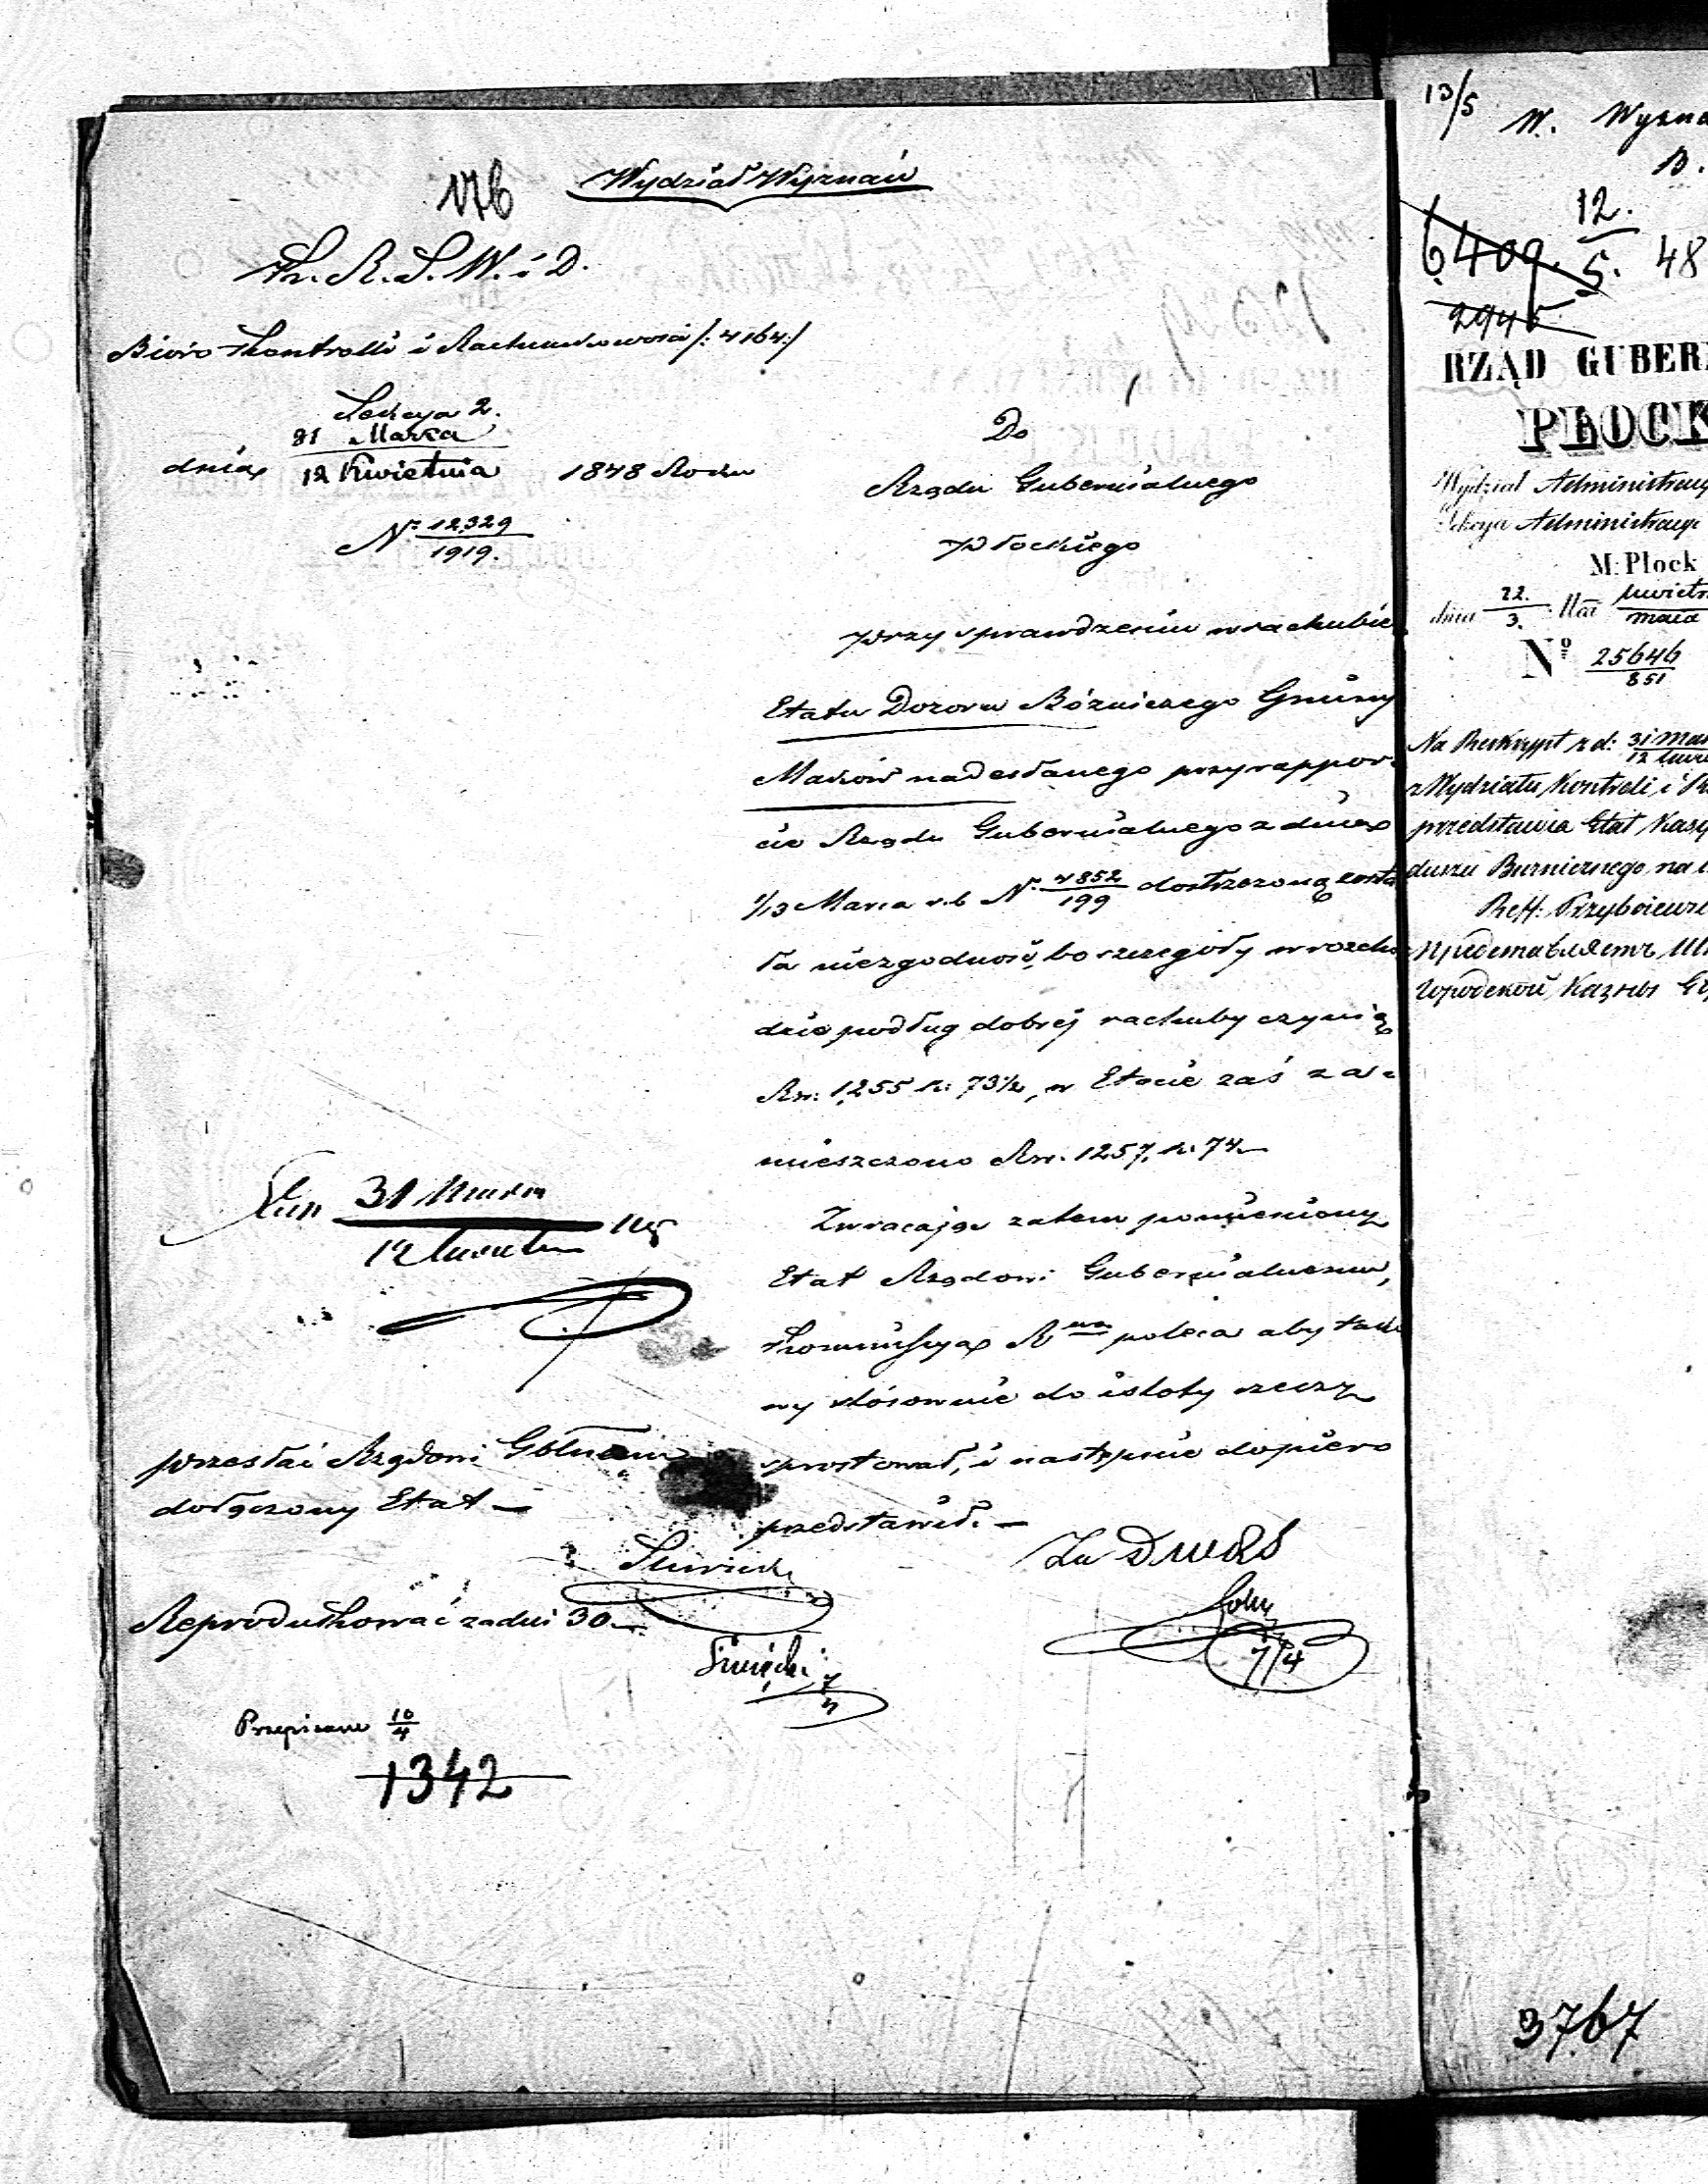 176
Wydział Wyznań
K. R. S. W. i D.
Biuro Kontrolli i Rachunkowości /: 4164 :/
Sekcya 2.
dnia 31 Marca / 12 Kwietnia 1848 Roku
N° 12,329 / 1919.
Do
Rządu Gubernialnego
Płockiego
Przy sprawdzeniu w rachubie
Etatu Dozoru Bóżniczego Gminy
Maków nadesłanego przy rappor-
cie Rządu Gubernialnego z dnia
1/13 Marca r. b N° 4852 / 199 dostrzeżoną zosta
ła niezgodność, bo szczegóły w rozcho
dzie podług dobrej rachuby czynią
Rs: 1,255 k: 73½, w Etacie zaś za-
mieszczono Rs. 1257, k. 74.—
Zwracając zatem pomieniony
Etat Rządowi Gubernialnemu,
Kommissya R poleca aby tako
wy stósownie do istoty rzeczy
sprostował, i następnie dopiero
przedstawił. —
31 Marca
12 Kwietnia
przesłać Rządowi Gblnemu
dołączony Etat —
Za Dyrek
7/4
Reprodukować za dni 30 —
Święcki
Przepisano 10/4
1342
13/5
W. Wyzna
B.
6409. 12. / 5. 48
2945
RZĄD GUBER
PŁOCK
Wydział Administracy
Sekcya Administracy
M: Płock
dnia 22. / 3. Kwietn / Maia
N° 25646 / 851
Na Reskrypt z d: 31 Mar / 12 Kwie
z Wydziału Kontroli i R
przedstawia Etat Kasy
duszu Bużnicznego na
Reff: Przyboiews
Представляетъ
Городской Казны
3767